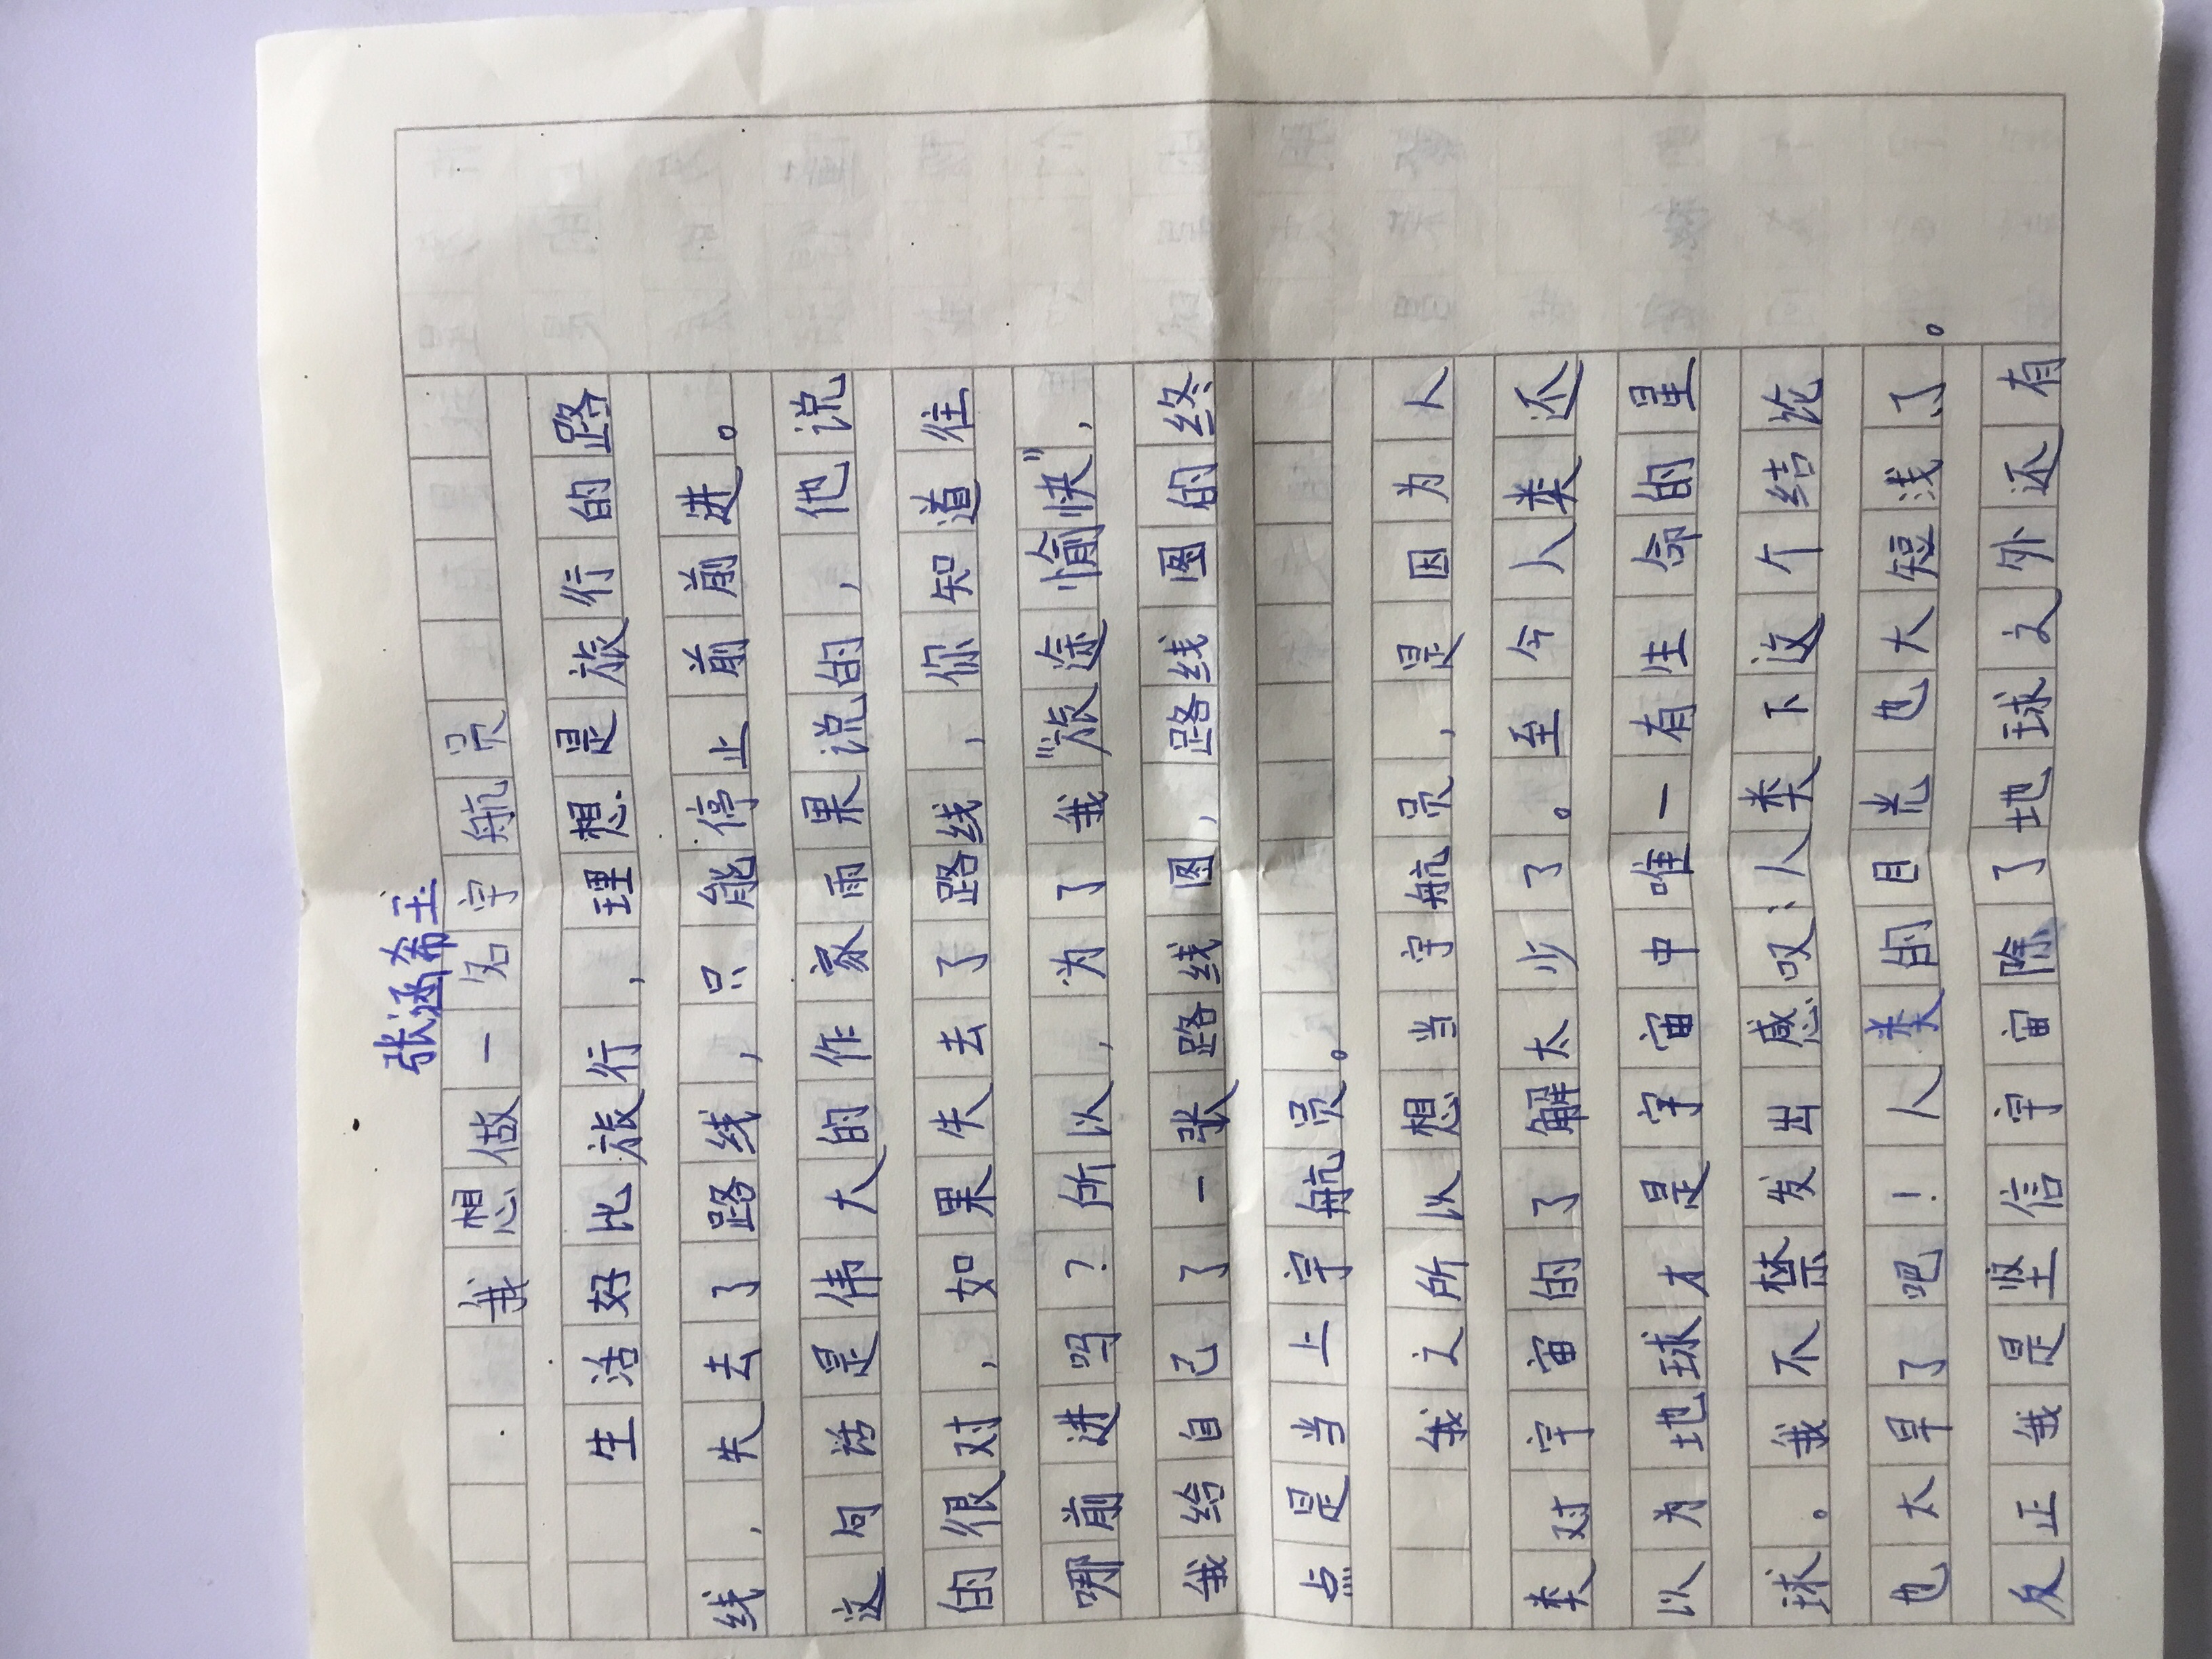 张涵希玉
我想做一名宇航员
生活好比旅行，理想是旅行的路
线，失去了路线，只能停止前前进。
这句话是伟大的作家雨果说的，他说
的很对，如果失去了路线，你知道往
哪前进吗？所以，为了我“旅途愉快”，
我给自己了一张路线图，路线图的终
点是当上宇航员。
我之所以想当宇航员，是因为人
类对宇宙的了解太少了。至今人类还
以为地球才是宇宙中唯一有生命的星
球。我不禁发出感叹：人类下这个结论
也太早了吧！人类的目光也太短浅了。
反正我是坚信宇宙除了地球之外还有